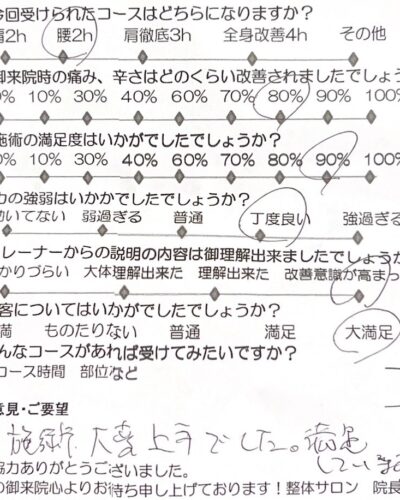 今回受けられたコースはどちらになりますか?
肩2h 腰2h 肩徹底3h 全身改善4h その他
御来院時の痛み、辛さはどのくらい改善されましたでしょう
0% 10% 30% 40% 60% 70% 80% 90% 100%
施術の満足度はいかがでしたでしょうか?
0% 10% 30% 40% 60% 70% 80% 90% 100%
力の強弱はいかかでしたでしょうか?
効いてない 弱過ぎる 普通 丁度良い 強過ぎる
レーナーからの説明の内容は御理解出来ましたでしょうか?
かりづらい 大体理解出来た 理解出来た 改善意識が高まっ
客についてはいかがでしたでしょうか?
満 ものたりない 普通 満足 大満足
んなコースがあれば受けてみたいですか?
コース時間 部位など
意見・ご要望
施術 大変上手でした。満足
しています
協力ありがとうございました。
の御来院心よりお待ち申し上げております!整体サロン 院長